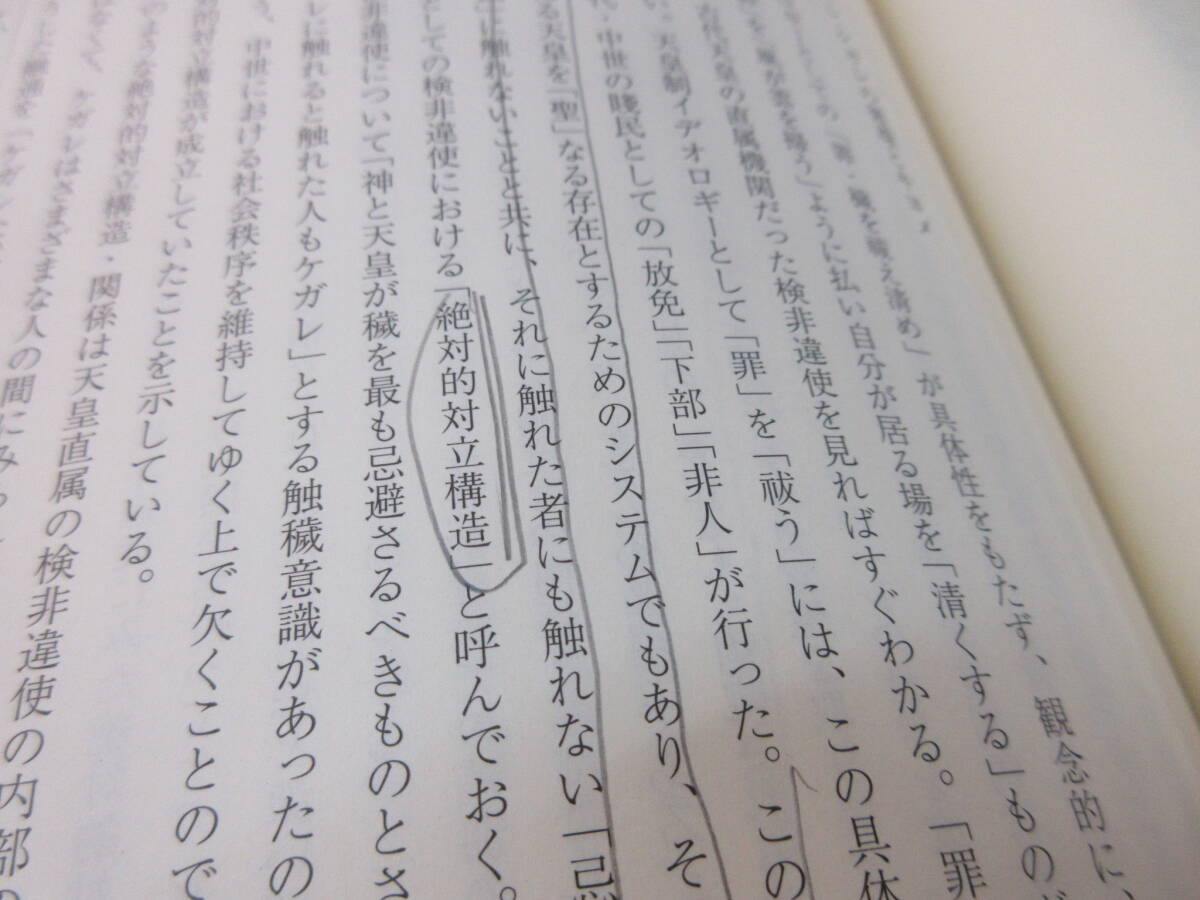 「罪・穢を祓え済め」が具体性をもたず、観念的に、
を祓う」ように払い自分が居る場を「清くする」もの
在天皇の直属機関だった検非違使を見ればすぐわかる。「罪
天皇制イデオロギーとして「罪」を「祓う」には、この具体
・中世の賤民としての「放免」「下部」「非人」が行った。この
る天皇を「聖」なる存在とするためのシステムでもあり、そ
に触れないことと共に、それに触れた者にも触れない「忌
としての検非違使における「絶対的対立構造」と呼んでおく。
非違使について「神と天皇が穢を最も忌避さるべきものとさ
レに触れると触れた人もケガレ」とする触穢意識があったの
、中世における社会秩序を維持してゆく上で欠くことので
対的対立構造が成立していたことを示している。
のような絶対的対立構造・関係は天皇直属の検非違使の内部の
なくて、ケガレはさまざまな人の間にみ